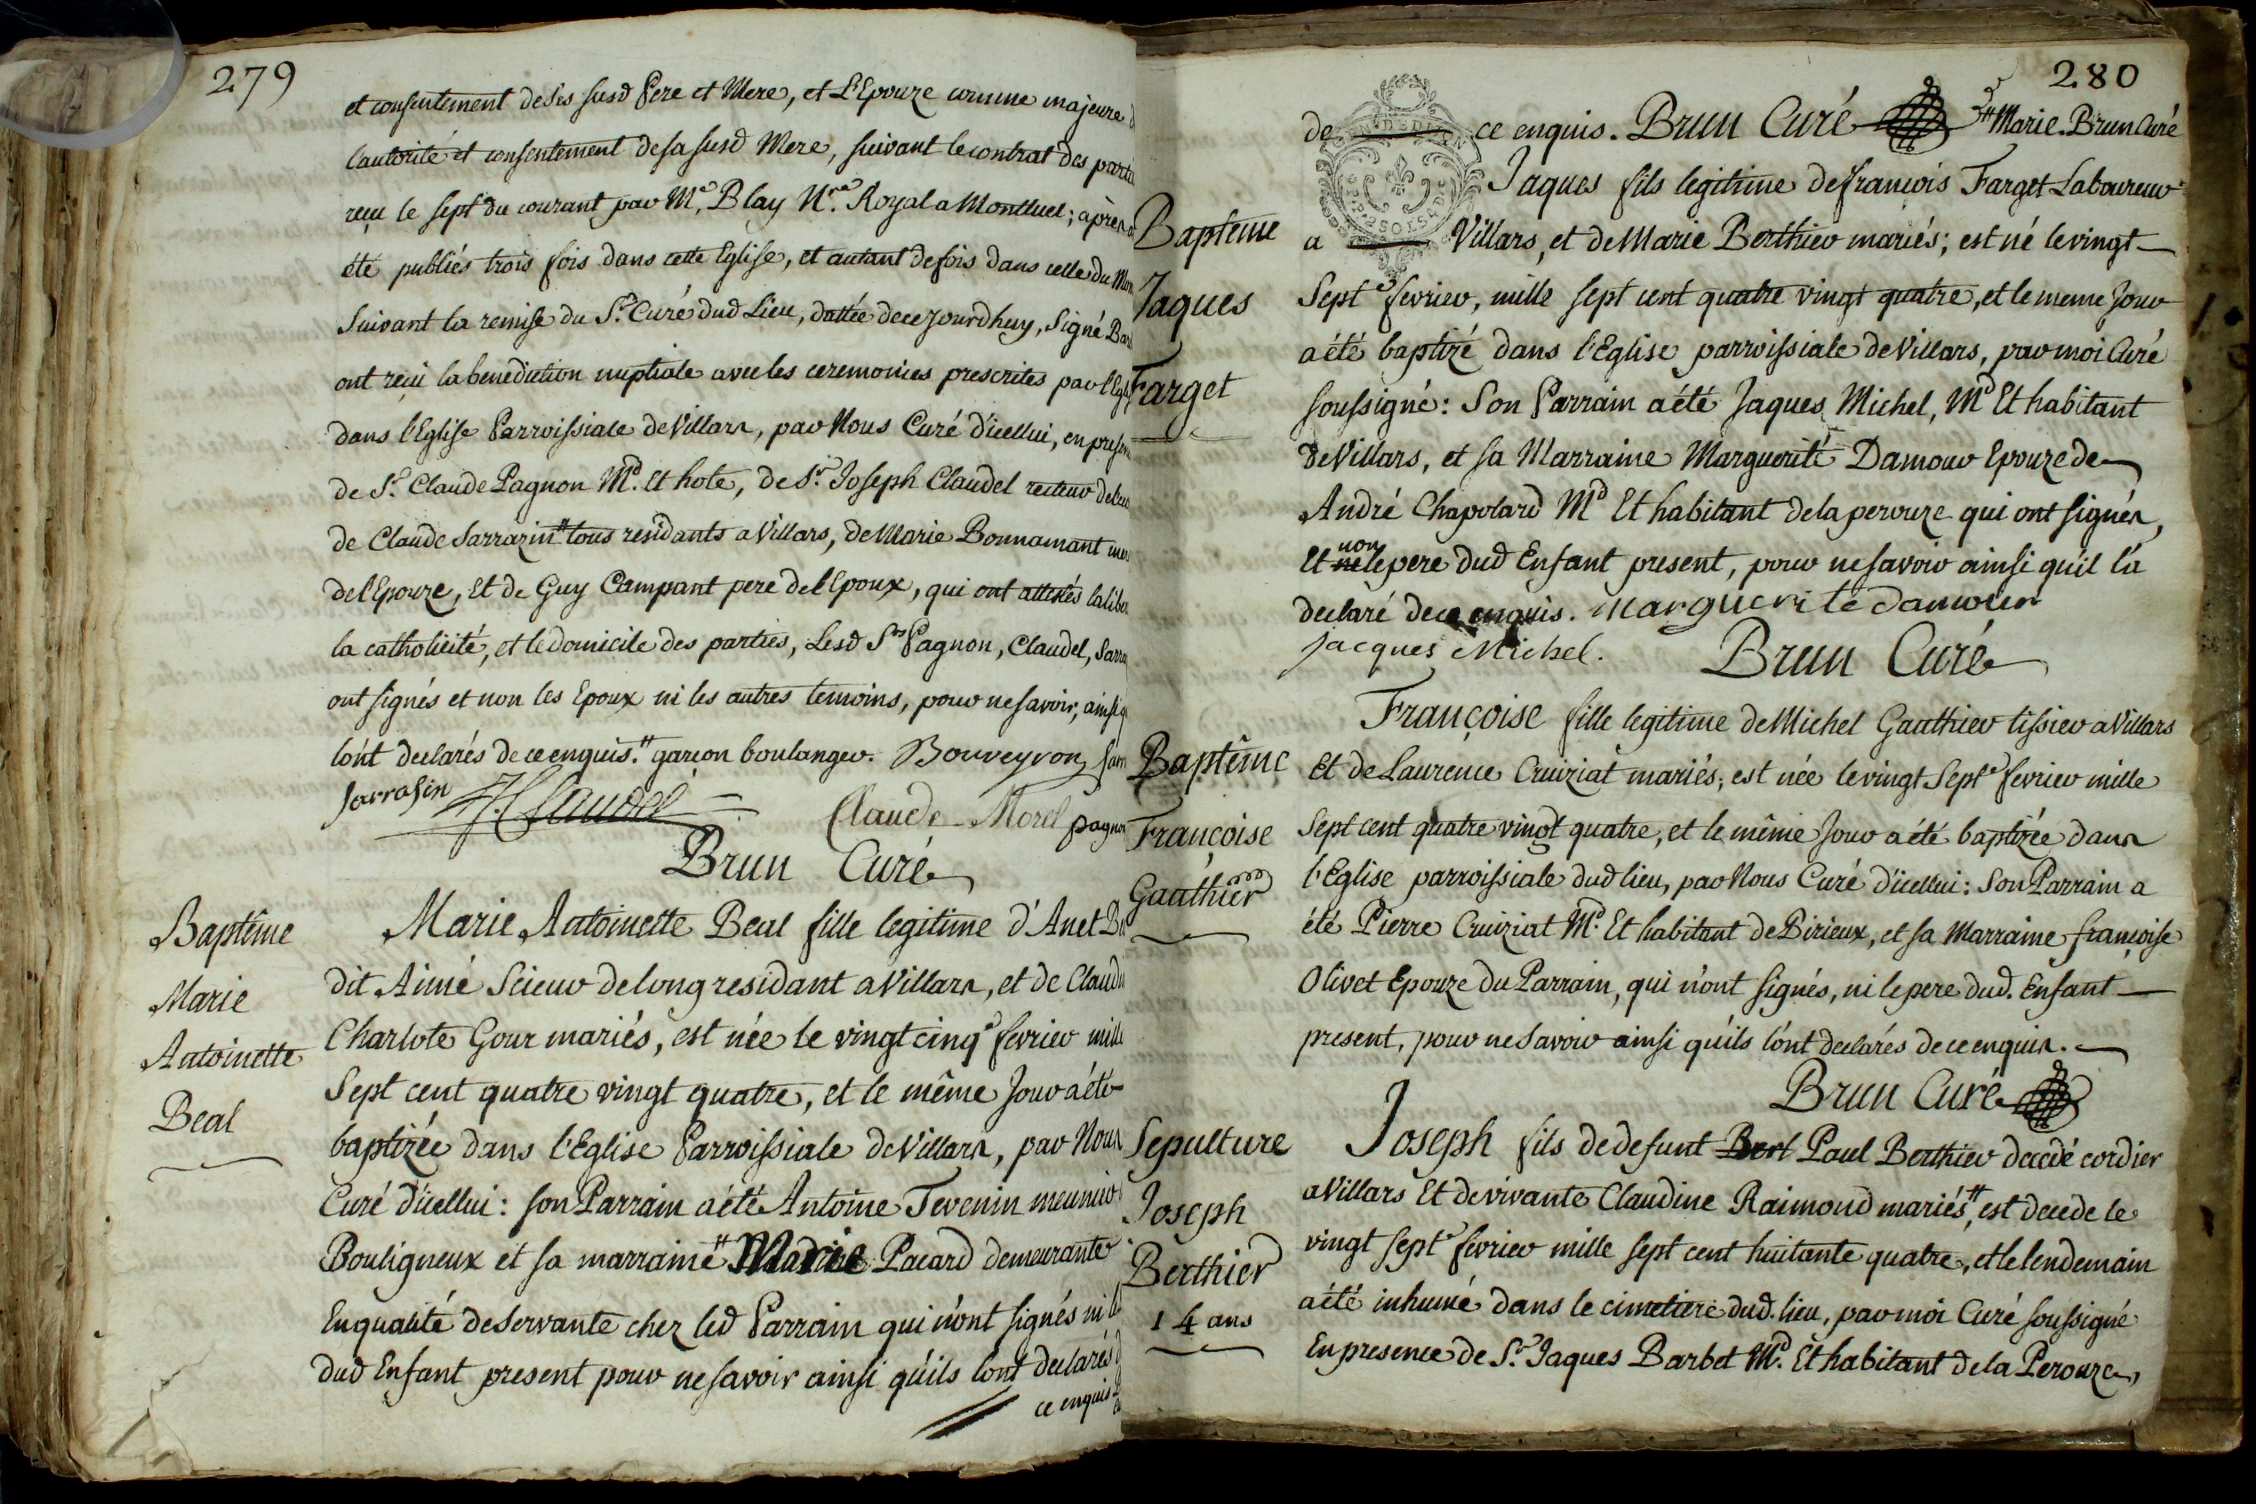 279
et consentement de ses susd Pere et Mere, et L'Epouze comme majeure
l'autorité et consentement de sa susd Mere, suivant le contrat des
reçu le sept du courant par Me. Blay Nre. Royal a Montluel; après
été publiés trois fois dans cette Eglise, et autant de fois dans celle du
Suivant la remise du Sr. Curé dud Lieu, dattée de ce jourdhuy, Signé
ont reçu la benediction nuptiale avec les ceremonies prescrites par
dans l'Eglise Parroissiale de Villars, par Nous Curé d'icellui, en
de Sr. Claude Pagnon Md. Et hote, de Sr. Joseph Claudel recteur
de Claude Sarrazin # tous residants a Villars, de Marie Bonnamant
de l'Epouze, Et de Guy Campant pere de l'Epoux, qui ont attestés
la catholicité, et le domicile des parties, Lesd Srs Pagnon, Claudel,
ont signés et non les Epoux ni les autres temoins, pour ne savoir,
l'ont declarés de ce enquis. # garçon boulanger. Bouveyron
Sarrasin J. Claudel Claude Morel
Brun Curé
Baptême
Marie
Antoinette
Beal
Marie Antoinette Beal fille legitime d'Anet
dit Aimé Scieur de long residant a Villars, et de
Charlote Gour mariés, est née le vingt cinqe fevrier
Sept cent quatre vingt quatre, et le même Jour a été
baptizée dans l'Eglise Parroissiale de Villars, par Nous
Curé d'icellui: son Parrain a été Antoine Tevenin
Bouligneux et sa marraine # Marie Pacard demeurante
En qualité de Servante chez led Parrain qui n'ont signés ni
dud Enfant present pour ne savoir ainsi qu'ils l'ont declarés
ce enquis
280
de ce enquis. Brun Curé # Marie. Brun Curé
Baptême
Jaques
Farget
Jaques fils legitime de françois Farget Laboureur
a Villars, et de Marie Berthier mariés; est né le vingt
Septe fevrier, mille sept cent quatre vingt quatre, et le meme Jour
a été baptizé dans l'Eglise parroissiale de Villars, par moi Curé
soussigné: Son Parrain a été Jaques Michel, Md Et habitant
de Villars, et sa Marraine Marguerite Damour Epouze de
André Chapolard Md Et habitant de la perouze qui ont signés,
non
Et ne le pere dud Enfant present, pour ne savoir ainsi qu'il l'a
declaré de ce enquis. marguerite damour
jacques Michel. Brun Curé
Baptême
Françoise
Gauthier
Françoise fille legitime de Michel Gauthier tissier a Villars
Et de Laurence Cruiziat mariés, est née le vingt Septe fevrier mille
Sept cent quatre vingt quatre, et le même Jour a été baptizée dans
l'Eglise parroissiale dud lieu, par Nous Curé d'icellui: Son Parrain a
été Pierre Cruiziat Md. Et habitant de Birieux, et sa Marraine françoise
Olivet Epouze du Parrain, qui n'ont signés, ni le pere dud. Enfant
present, pour ne Savoir ainsi qu'ils l'ont declarés de ce enquis.
Brun Curé
Sepulture
Joseph
Berthier
14 ans
Joseph fils de defunt Berl Paul Berthier decedé cordier
a Villars Et de vivante Claudine Raimond mariés #, est decede le
vingt septe fevrier mille sept cent huitante quatre, et le lendemain
a été inhumé dans le cimetiere dud. lieu, par moi Curé soussigné
En presence de Sr. Jaques Barbet Md. Et habitant de la Perouze,